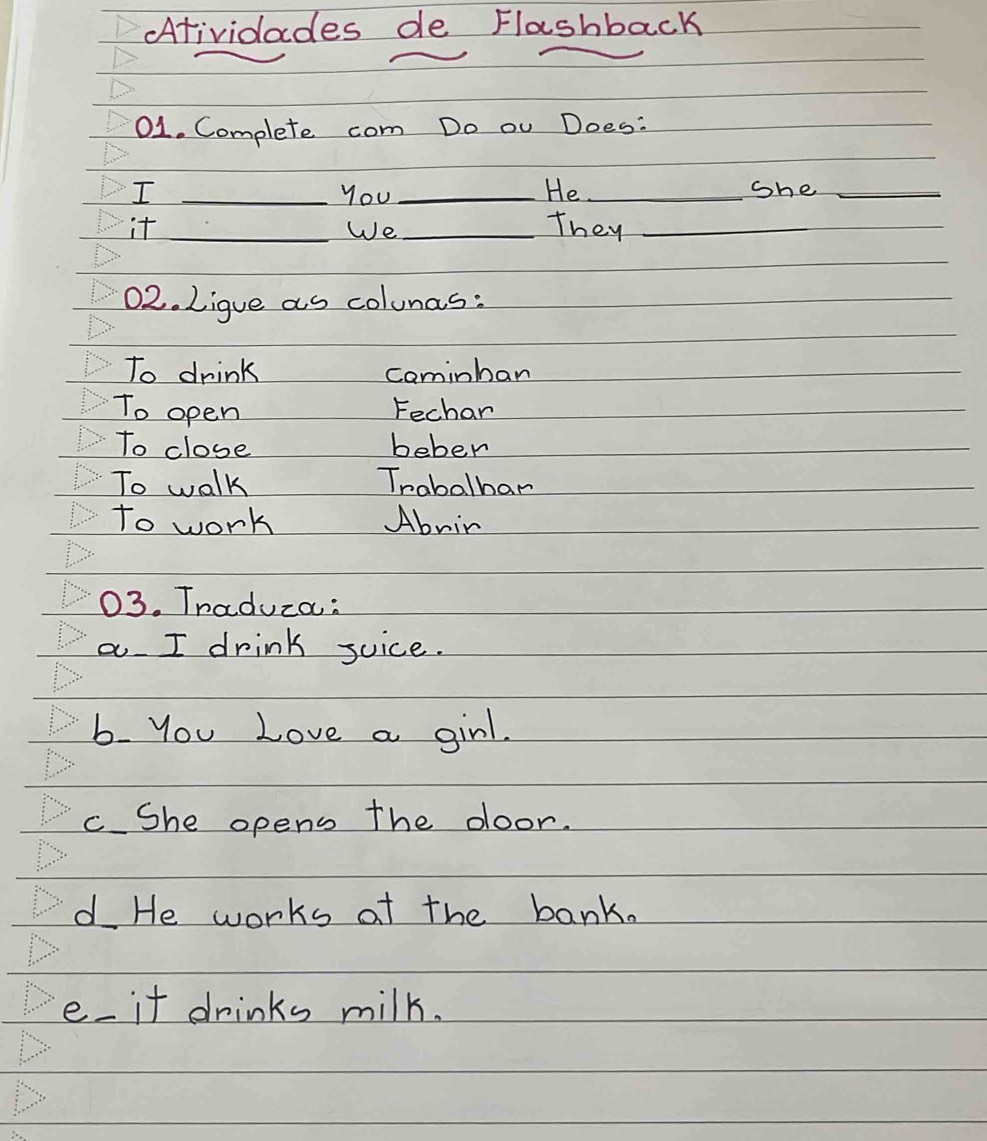 Atividades de Flashback
01. Complete com Do ou Does:
I ________ You ________ He ________ She ________
it ________ We ________ They ________
02. Ligue as colunas:
To drink caminhar
To open Fechar
To close beber
To walk Trabalhar
To work Abrir
03. Traduza:
a- I drink juice.
b- You Love a girl.
c- She opens the door.
d- He works at the bank.
e- it drinks milk.